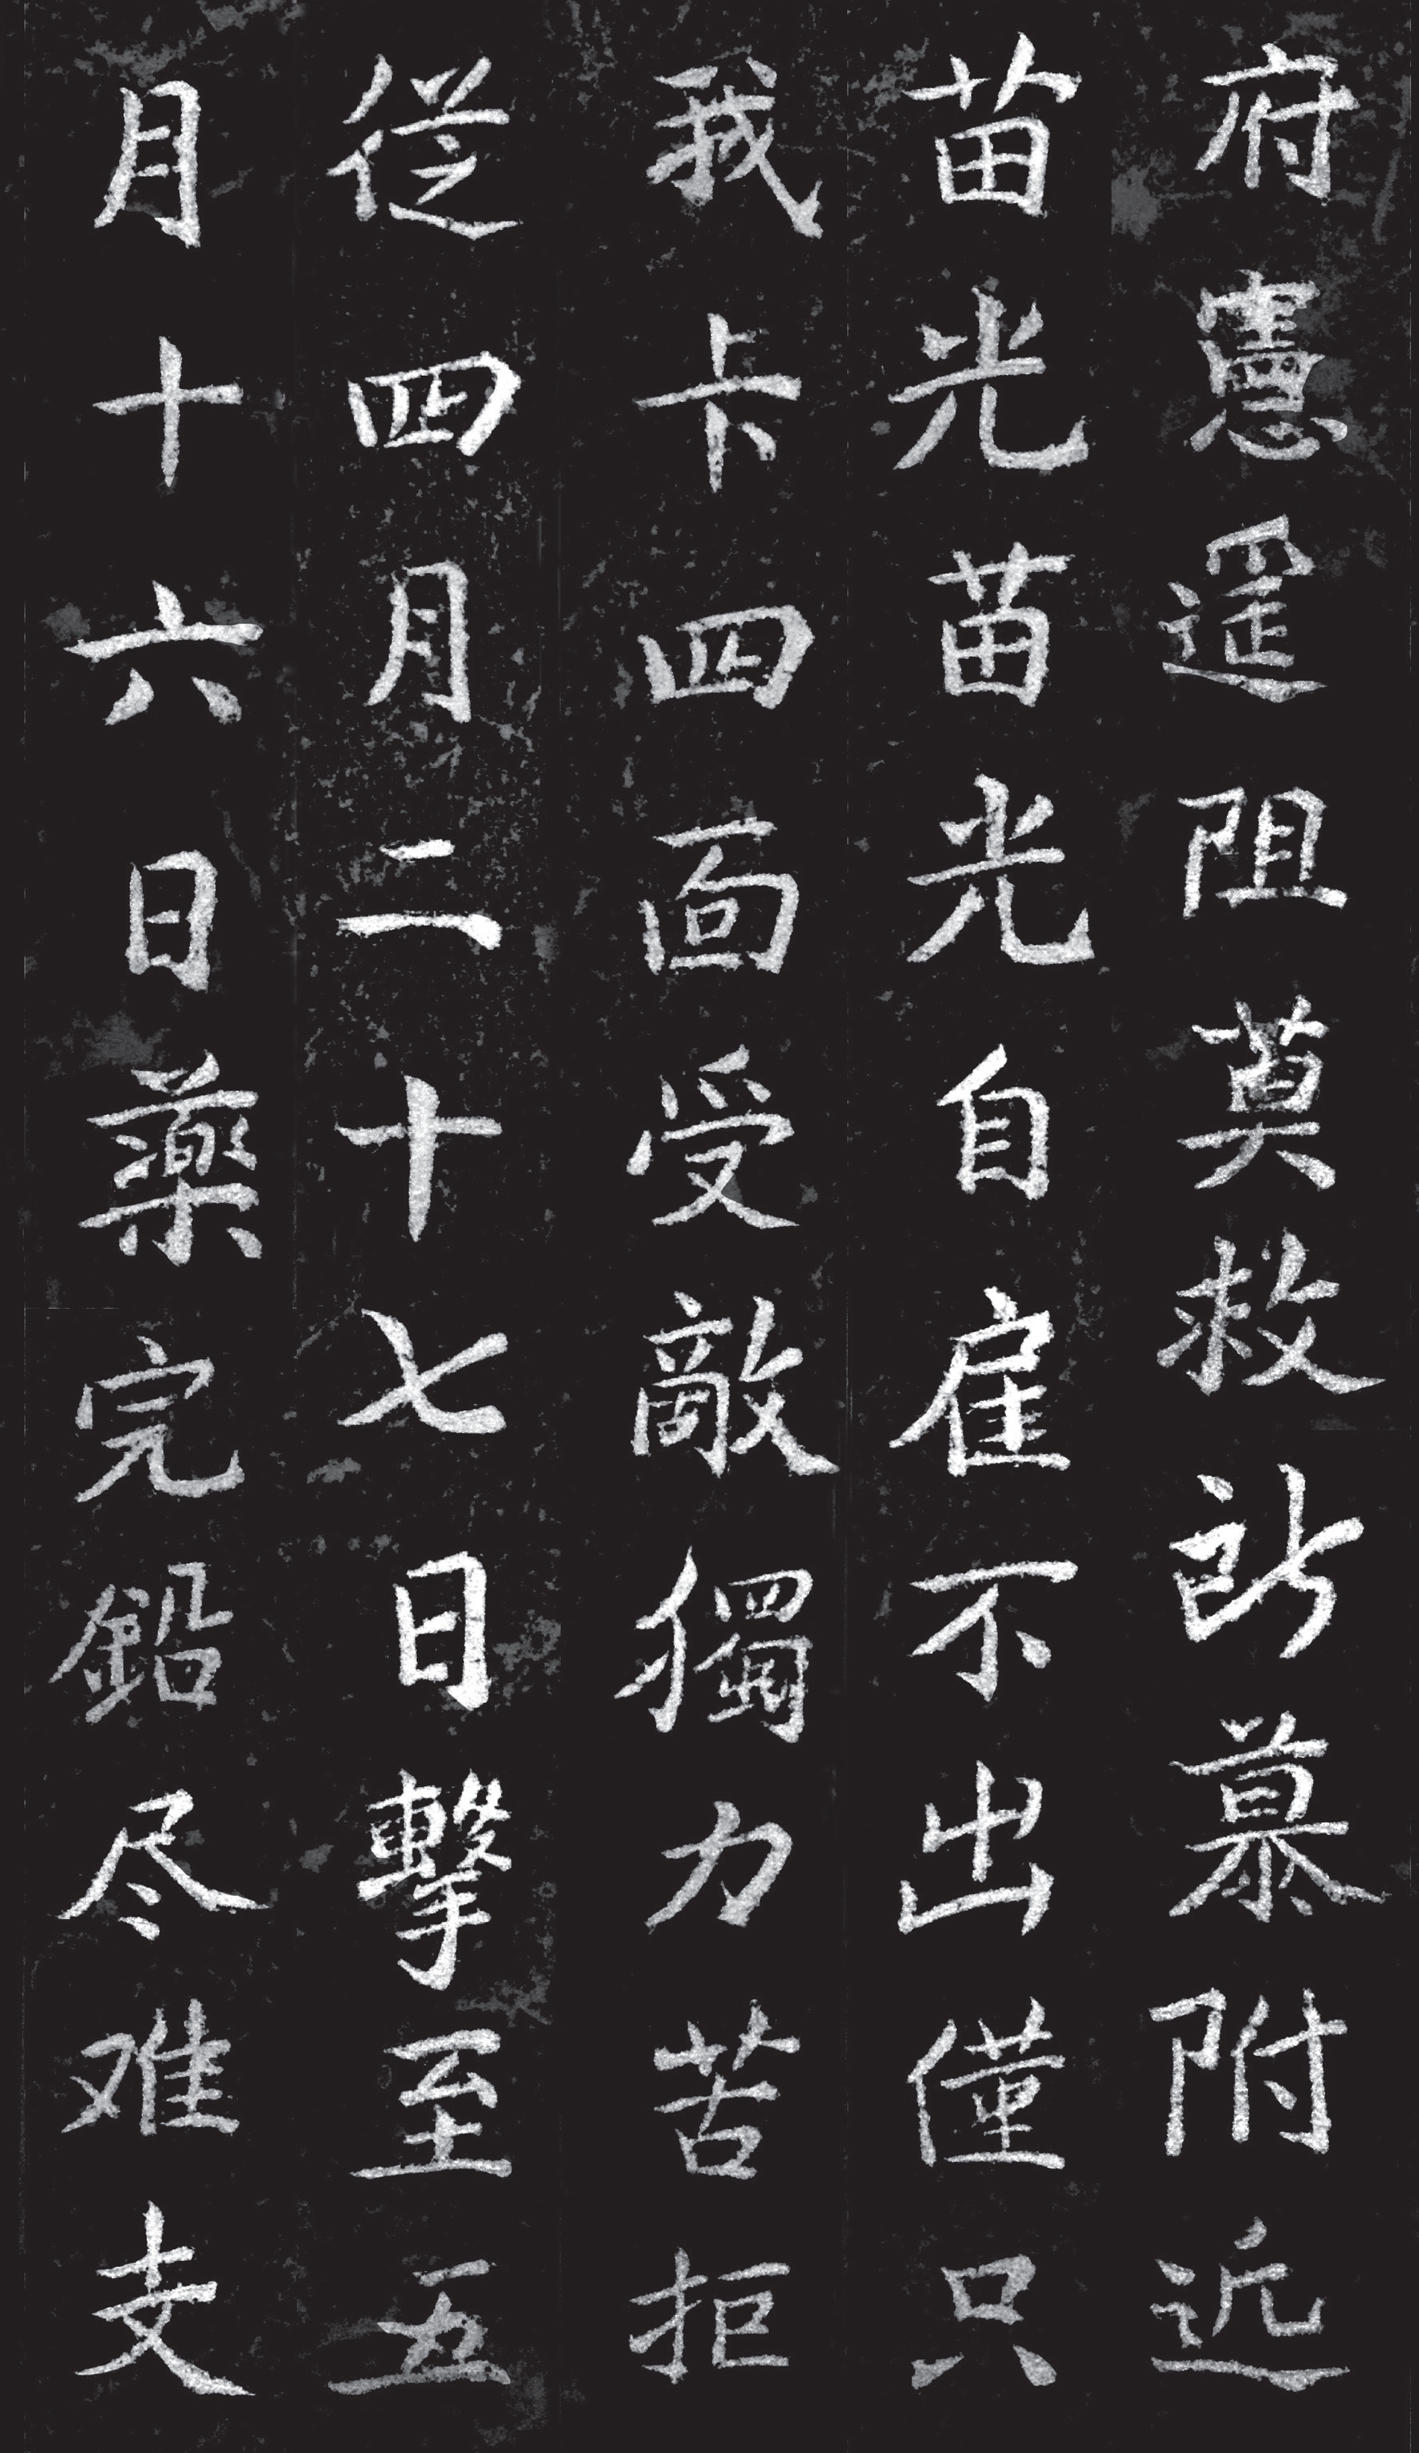 府憲遥阻莫救所募附近
苗光苗光自雇不出僅只
我卡四面受敵獨力苦拒
從四月二十七日擊至五
月十六日藥完鉛尽难支